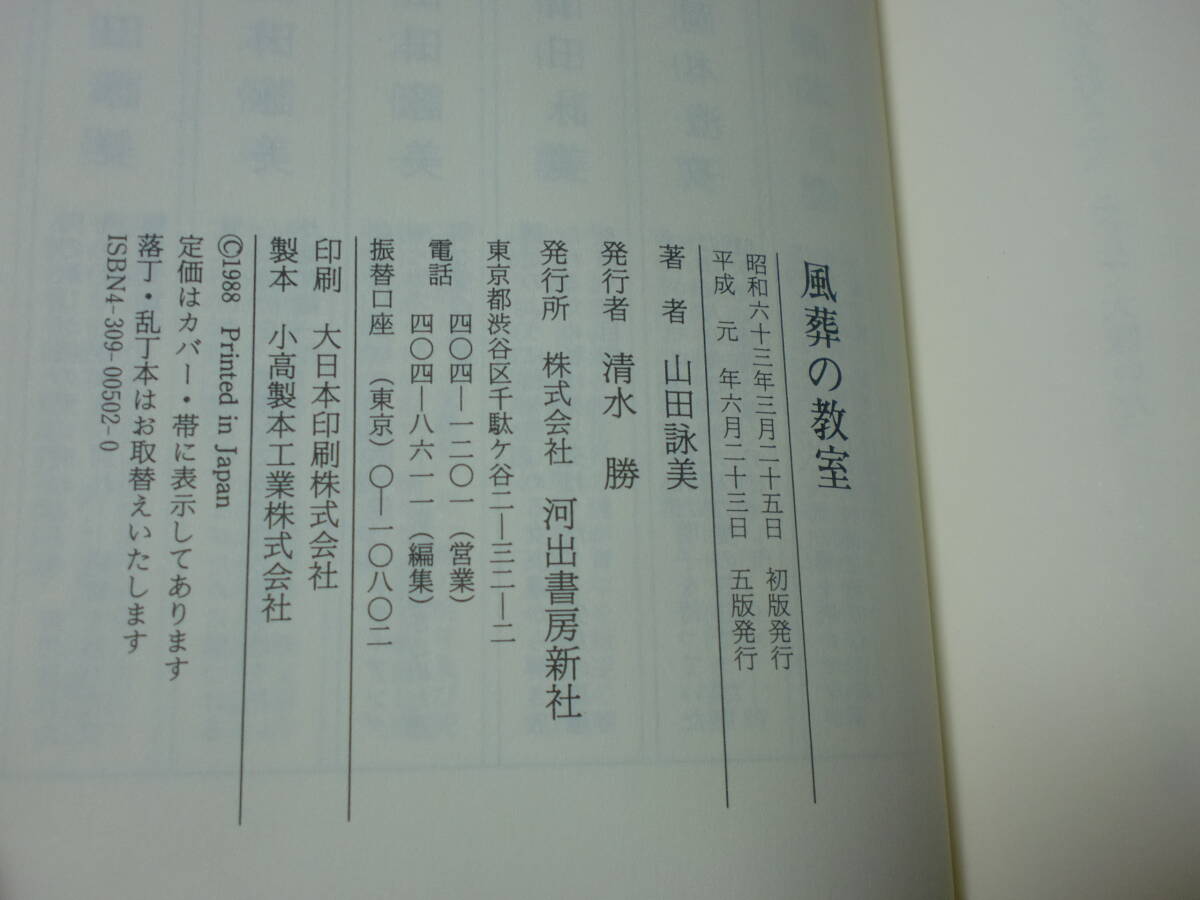 風葬の教室
昭和六十三年三月二十五日 初版発行
平成 元 年六月二十三日 五版発行
著 者 山田詠美
発行者 清水 勝
発行所 株式会社 河出書房新社
東京都渋谷区千駄ケ谷二―三二―二
電話 四〇四―一二〇一(営業)
四〇四―八六一一(編集)
振替口座 (東京)〇―一〇八〇二
印刷 大日本印刷株式会社
製本 小高製本工業株式会社
©1988 Printed in Japan
定価はカバー・帯に表示してあります
落丁・乱丁本はお取替えいたします
ISBN4-309-00502-0